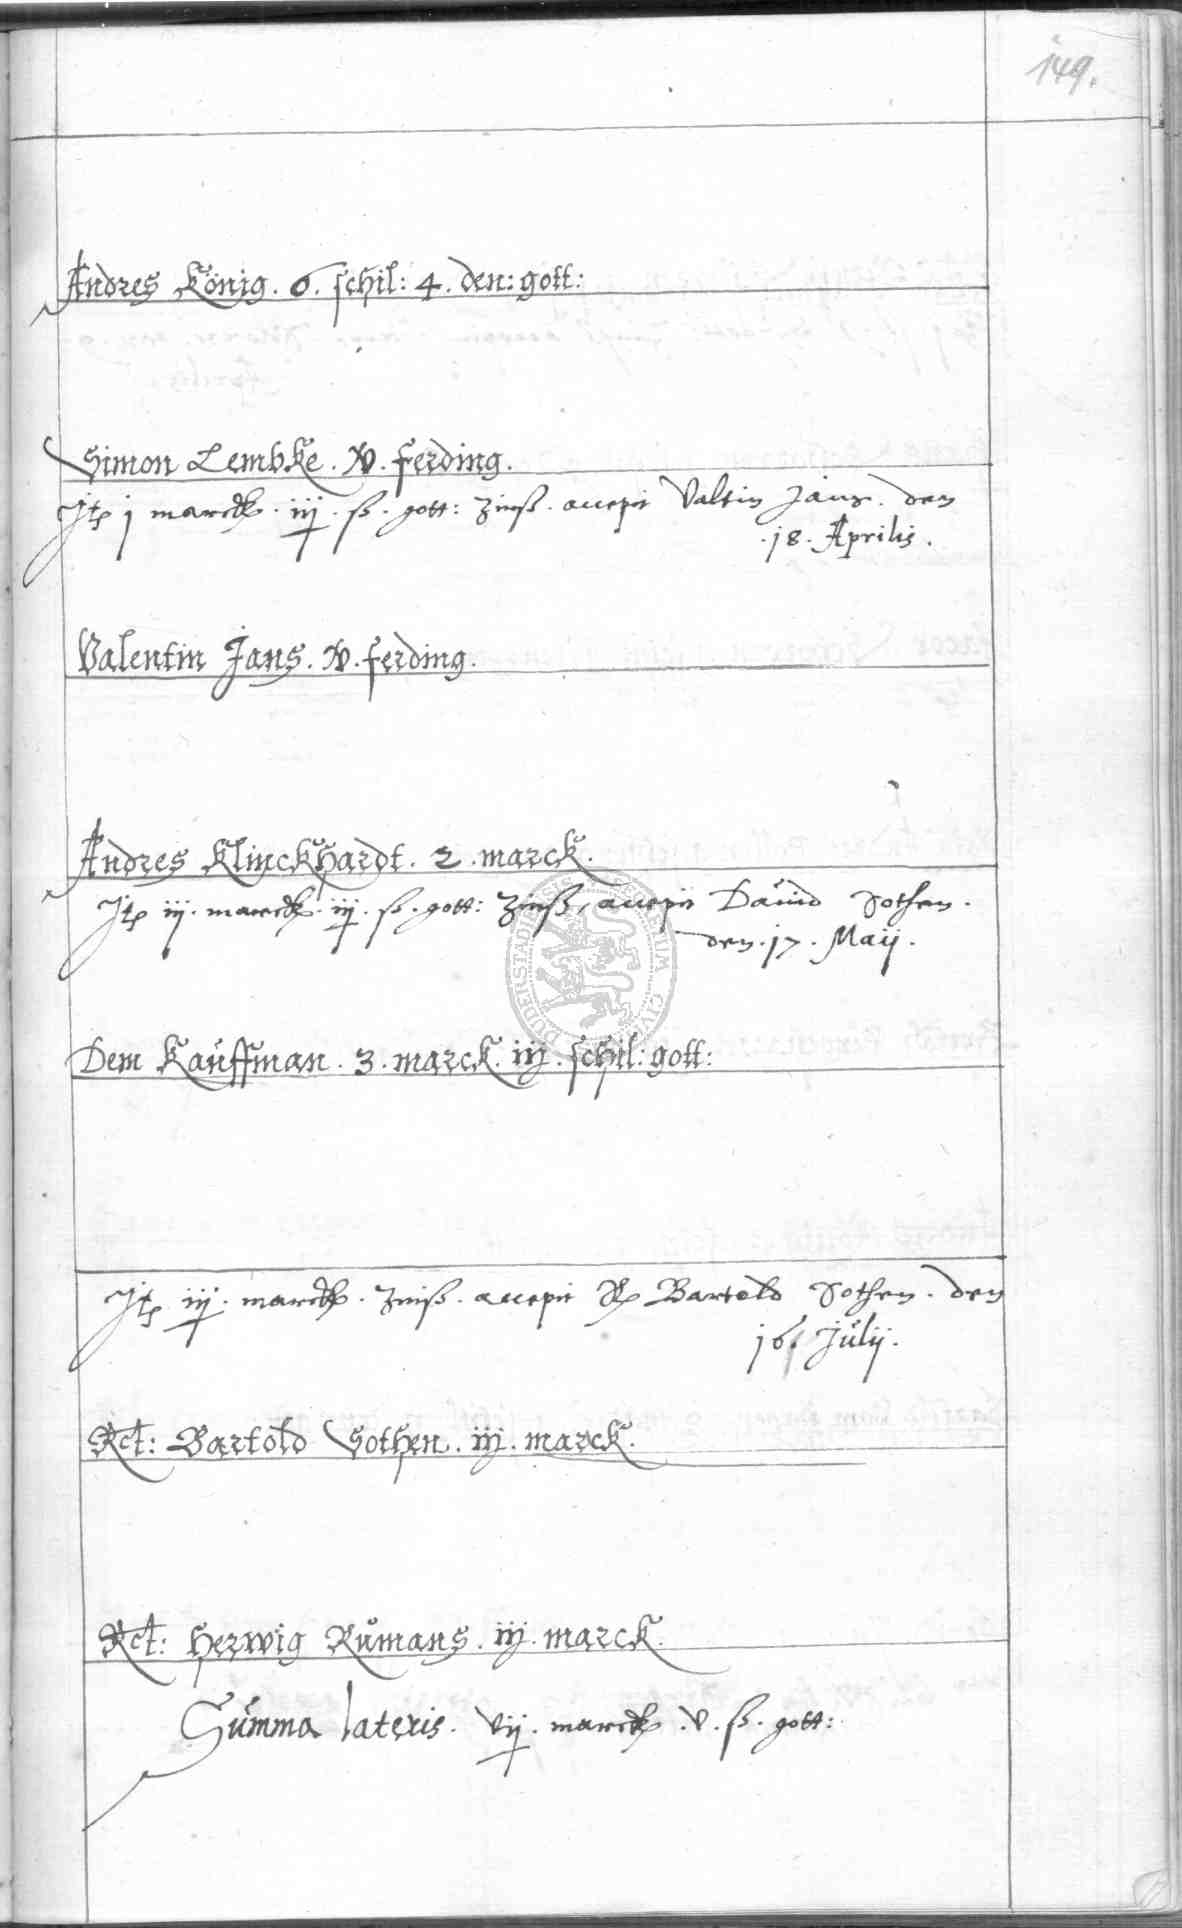 149.
Andres König. 6. schil: 4. den: gott:
Simon Lembke. V. ferding.
Itp j marck. iij. ß. gott: Zinß. accepit Valtin Jans. den
.18. Aprilis.
Valentin Jans. V. ferding.
Andres Klinckhardt. 2. marck.
Itp ij. marck. iij. ß. gott: Zinß, accepit Dauid Sothen.
den. 17. Maij.
Dem Kauffman. 3. marck. iij. schil: gott:
Itp iij. marck. Zinß. accepit Bartold Sothen. den
16. Julij.
Rct: Bartold Sothen. iij. marck.
Rct: Herwig Rumans. iij. marck.
Summa lateris. vij. marck. v. ß. gott: